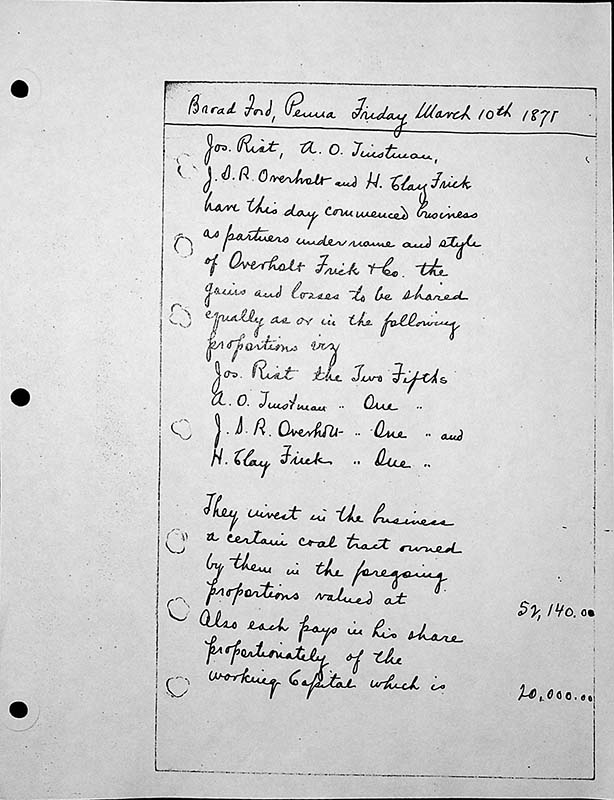 Broad Ford, Penna Friday March 10th 1871
Jos. Rist, A. O. Tinstman,
J. S. R. Overholt and H. Clay Frick
have this day commenced business
as partners under name and style
of Overholt Frick & Co. the
gains and losses to be shared
equally as or in the following
proportions viz
Jos. Rist the Two Fifths
A. O. Tinstman " One "
J. S. R. Overholt " One " and
H. Clay Frick " One "
They invest in the business
a certain coal tract owned
by them in the foregoing
proportions valued at 52,140.00
Also each pays in his share
proportionately of the
working Capital which is 20,000.00